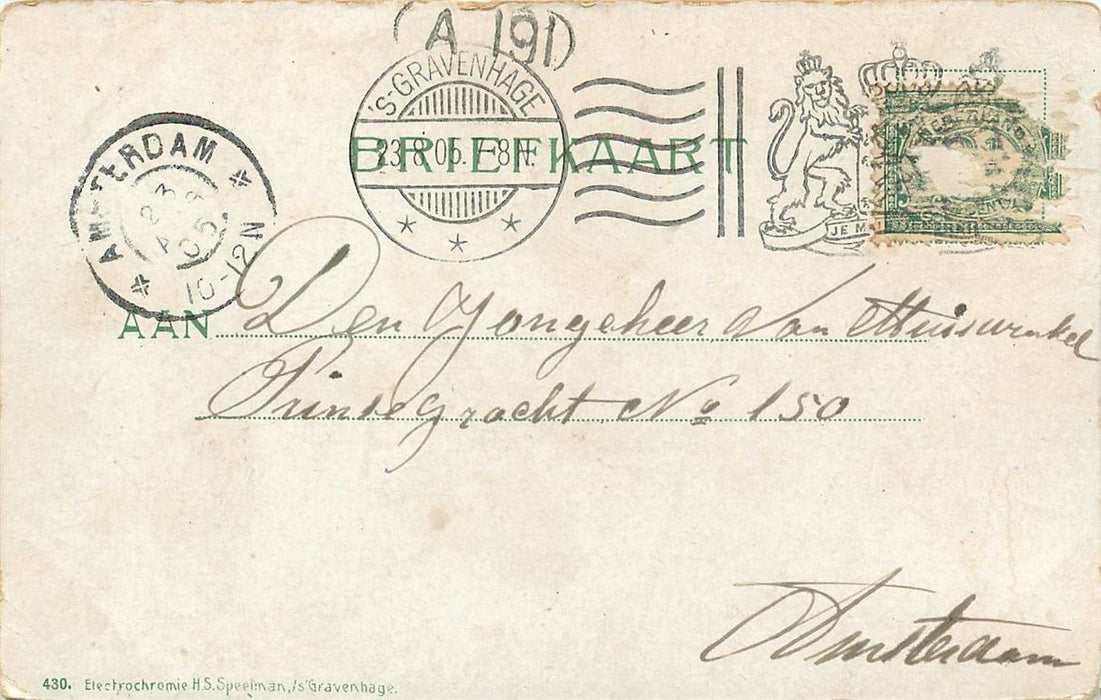 (A 191)
'S-GRAVENHAGE
23.8.05. 7-8N.
AMSTERDAM
23
05
10-12N
BRIEFKAART
JE M
NEDERLAND
AAN Den Jongeheer Van Thuiswinkel
Prinsegracht, No 150
Amsterdam
430. Electrochromie H.S. Speelman, 's Gravenhage.